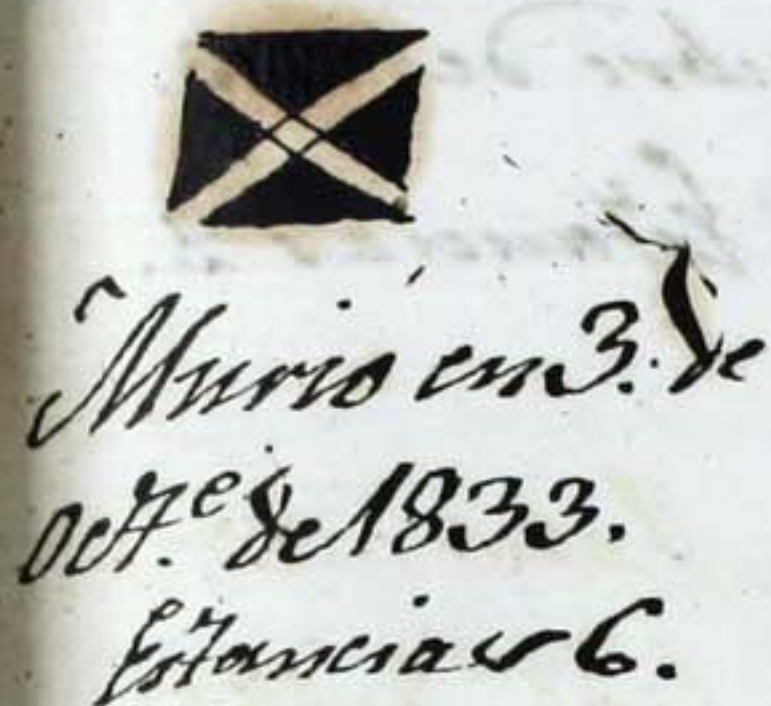 Murió en 3. de
Oct.e de 1833.
Estancias 6.